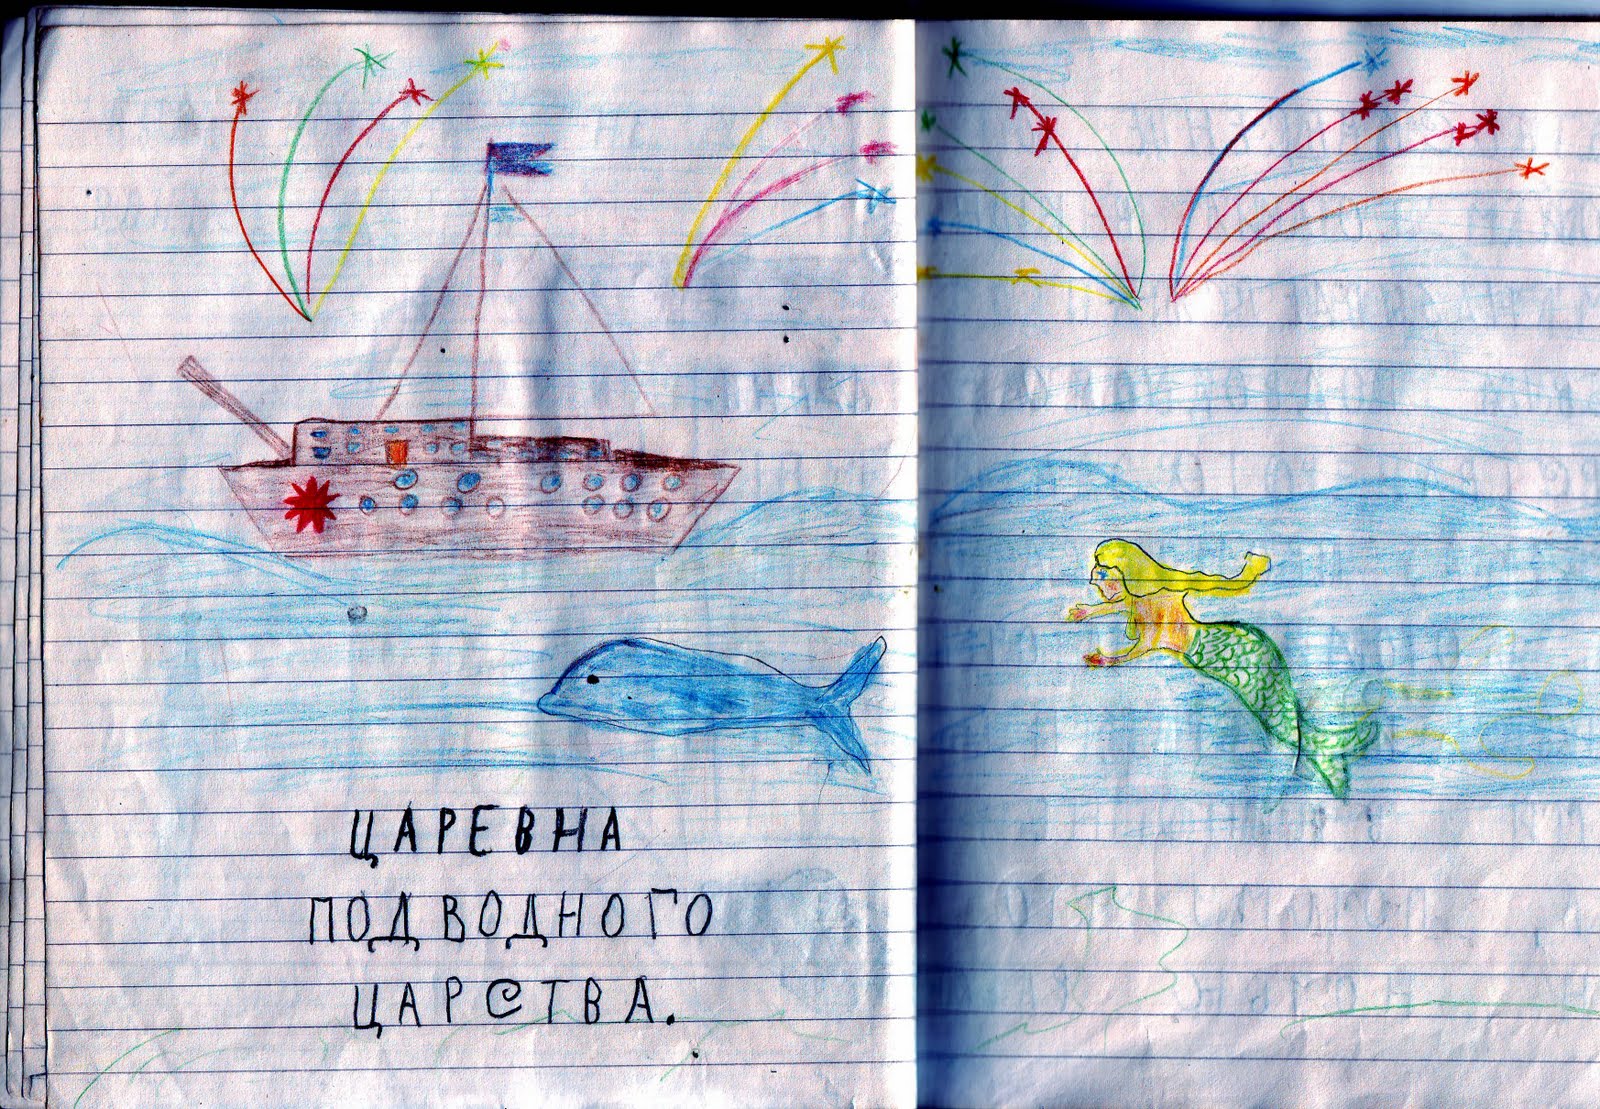 ЦАРЕВНА
ПОДВОДНОГО
ЦАРСТВА.